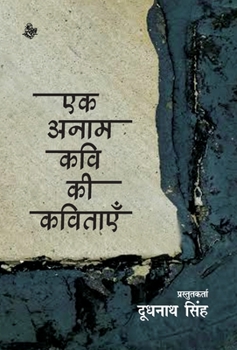 एक
अनाम
कवि
की
कविताएँ
प्रस्तुतकर्ता
दूधनाथ सिंह